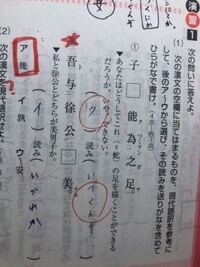 演習 1
次の問いに答えよ。
(1) 次の漢文の空欄に当てはまるものを、現代語訳を参考に
して、後のア〜ウから選び、その読みを送りがなを含めて
ひらがなで書け。
① 子 □ 能 為 之 足。
▼あなたはどうしてこれ（＝蛇）の足を描くことができる
だろうか、いや、できない。
（ウ）読み（いづくんぞ）
② 吾 与 徐 公 □ 美。
▼私と徐公とどちらが美男子か。
（イ）読み（いづれか
ア 幾 イ 孰 ウ 安
(2) 次の漢文を現代語訳せよ。